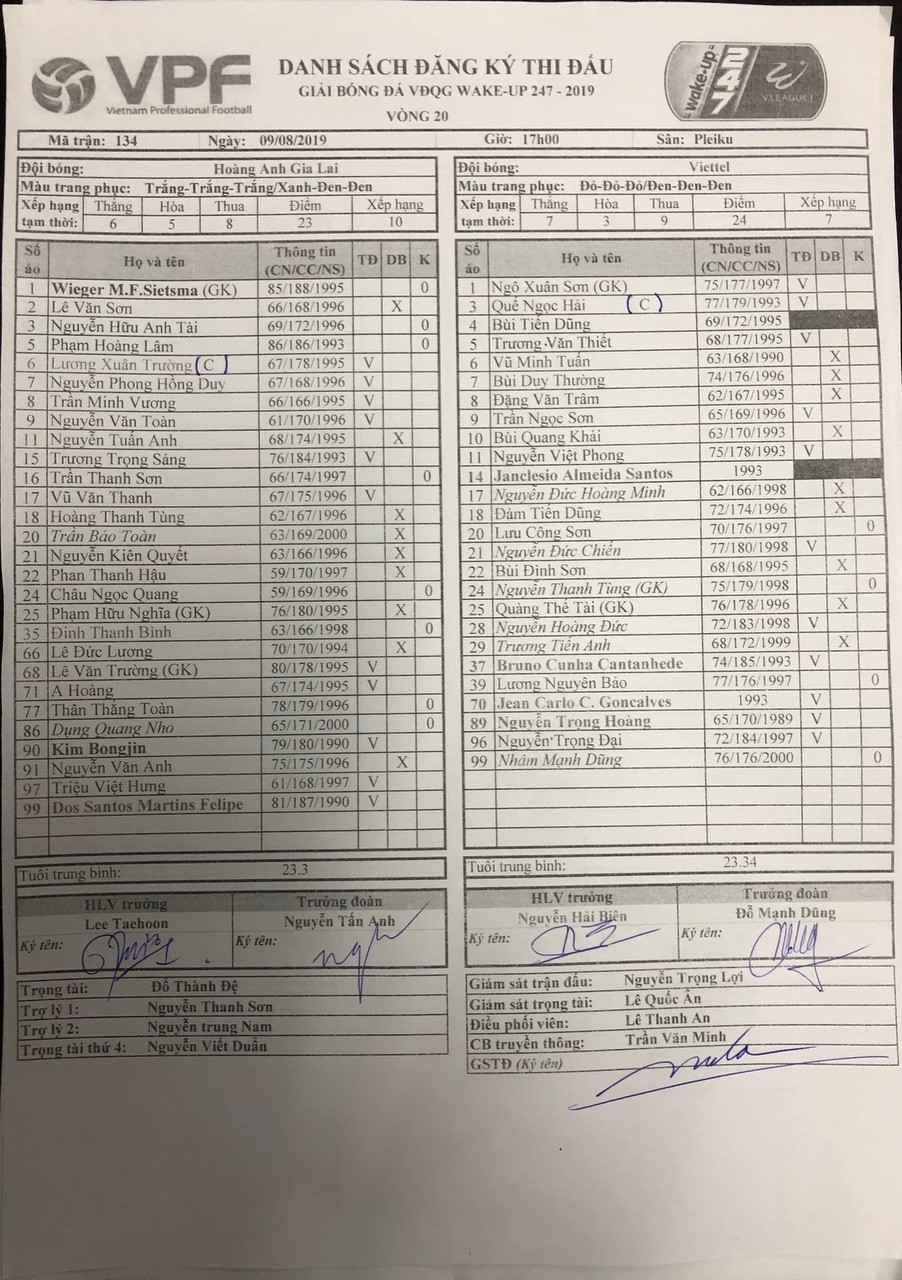 VPF
Vietnam Professional Football
DANH SÁCH ĐĂNG KÝ THI ĐẤU
GIẢI BÓNG ĐÁ VĐQG WAKE-UP 247 - 2019
VÒNG 20
wake-up 247
V.LEAGUE 1
Mã trận: 134 Ngày: 09/08/2019 Giờ: 17h00 Sân: Pleiku
Đội bóng: Hoàng Anh Gia Lai
Màu trang phục: Trắng-Trắng-Trắng/Xanh-Đen-Đen
Xếp hạng Thắng Hòa Thua Điểm Xếp hạng
tạm thời: 6 5 8 23 10
Số áo Họ và tên Thông tin (CN/CC/NS) TĐ DB K
1 Wieger M.F.Sietsma (GK) 85/188/1995 0
2 Lê Văn Sơn 66/168/1996 X
3 Nguyễn Hữu Anh Tài 69/172/1996 0
5 Phạm Hoàng Lâm 86/186/1993 0
6 Lương Xuân Trường (C) 67/178/1995 V
7 Nguyễn Phong Hồng Duy 67/168/1996 V
8 Trần Minh Vương 66/166/1995 V
9 Nguyễn Văn Toàn 61/170/1996 V
11 Nguyễn Tuấn Anh 68/174/1995 X
15 Trương Trọng Sáng 76/184/1993 V
16 Trần Thanh Sơn 66/174/1997 0
17 Vũ Văn Thanh 67/175/1996 V
18 Hoàng Thanh Tùng 62/167/1996 X
20 Trần Bảo Toàn 63/169/2000 X
21 Nguyễn Kiên Quyết 63/166/1996 X
22 Phan Thanh Hậu 59/170/1997 X
24 Châu Ngọc Quang 59/169/1996 0
25 Phạm Hữu Nghĩa (GK) 76/180/1995 X
35 Đinh Thanh Bình 63/166/1998 0
66 Lê Đức Lương 70/170/1994 X
68 Lê Văn Trường (GK) 80/178/1995 V
71 A Hoàng 67/174/1995 V
77 Thân Thắng Toàn 78/179/1996 0
86 Dụng Quang Nho 65/171/2000 0
90 Kim Bongjin 79/180/1990 V
91 Nguyễn Văn Anh 75/175/1996 X
97 Triệu Việt Hưng 61/168/1997 V
99 Dos Santos Martins Felipe 81/187/1990 V
Tuổi trung bình: 23.3
HLV trưởng Trưởng đoàn
Lee Taehoon Nguyễn Tấn Anh
Ký tên: Ký tên:
Trọng tài: Đỗ Thành Đệ
Trợ lý 1: Nguyễn Thanh Sơn
Trợ lý 2: Nguyễn trung Nam
Trọng tài thứ 4: Nguyễn Viết Duẩn
Đội bóng: Viettel
Màu trang phục: Đỏ-Đỏ-Đỏ/Đen-Đen-Đen
Xếp hạng Thắng Hòa Thua Điểm Xếp hạng
tạm thời: 7 3 9 24 7
Số áo Họ và tên Thông tin (CN/CC/NS) TĐ DB K
1 Ngô Xuân Sơn (GK) 75/177/1997 V
3 Quế Ngọc Hải (C) 77/179/1993 V
4 Bùi Tiến Dũng 69/172/1995
5 Trương Văn Thiết 68/177/1995 V
6 Vũ Minh Tuấn 63/168/1990 X
7 Bùi Duy Thường 74/176/1996 X
8 Đặng Văn Trâm 62/167/1995 X
9 Trần Ngọc Sơn 65/169/1996 V
10 Bùi Quang Khải 63/170/1993 X
11 Nguyễn Việt Phong 75/178/1993 V
14 Janclesio Almeida Santos 1993
17 Nguyễn Đức Hoàng Minh 62/166/1998 X
18 Đàm Tiến Dũng 72/174/1996 X
20 Lưu Công Sơn 70/176/1997 0
21 Nguyễn Đức Chiến 77/180/1998 V
22 Bùi Đình Sơn 68/168/1995 X
24 Nguyễn Thanh Tùng (GK) 75/179/1998 0
25 Quàng Thế Tài (GK) 76/178/1996 X
28 Nguyễn Hoàng Đức 72/183/1998 V
29 Trương Tiến Anh 68/172/1999 X
37 Bruno Cunha Cantanhede 74/185/1993 V
39 Lương Nguyên Bảo 77/176/1997 0
70 Jean Carlo C. Goncalves 1993 V
89 Nguyễn Trọng Hoàng 65/170/1989 V
96 Nguyễn Trọng Đại 72/184/1997 V
99 Nhâm Mạnh Dũng 76/176/2000 0
Tuổi trung bình: 23.34
HLV trưởng Trưởng đoàn
Nguyễn Hải Biên Đỗ Mạnh Dũng
Ký tên: Ký tên:
Giám sát trận đấu: Nguyễn Trọng Lợi
Giám sát trọng tài: Lê Quốc Ân
Điều phối viên: Lê Thanh An
CB truyền thông: Trần Văn Minh
GSTĐ (Ký tên)